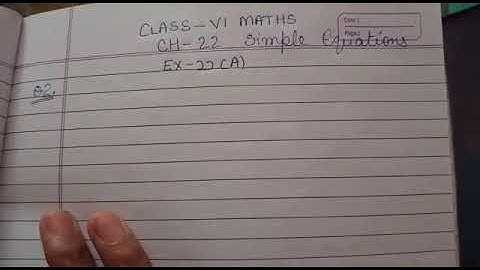 CLASS-VI MATHS
CH-22 Simple Equations
EX-22(A)
Q2.